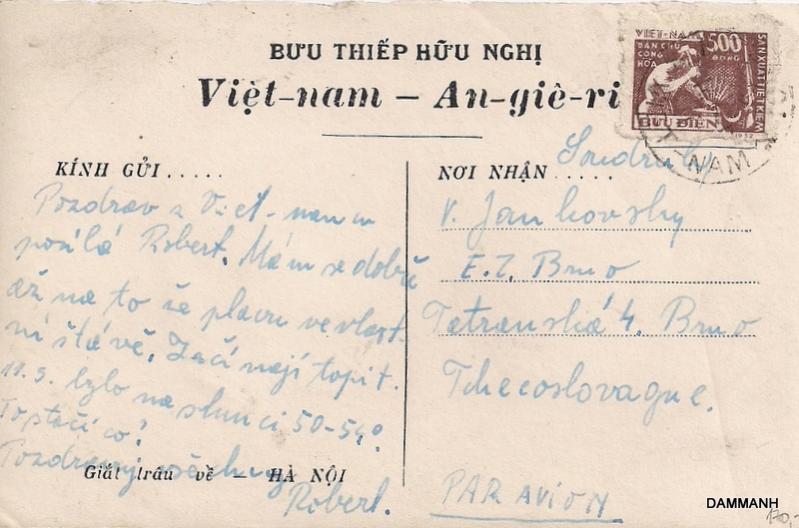 BƯU THIẾP HỮU NGHỊ
Việt-nam — An-giê-ri
VIỆT-NAM
DÂN CHỦ
CỘNG
HÒA
500
ĐỒNG
SẢN XUẤT TIẾT KIỆM
BƯU ĐIỆN
T-NAM
KÍNH GỬI.....
Pozdrav z Viet-namu
posílá Robert. Mám se dobře
až na to že plavu ve vlast-
ní šťávě. Začínají topit.
11.5. bylo na slunci 50-54°
To stačí co?
Pozdravuj všechny
Robert.
Giặt trâu về — HÀ NỘI
NƠI NHẬN.....
Soudruh
V. Jankovský
E.Z. Brno
Tatranská 4. Brno
Tchecoslovaque.
PAR AVION
DAMMANH